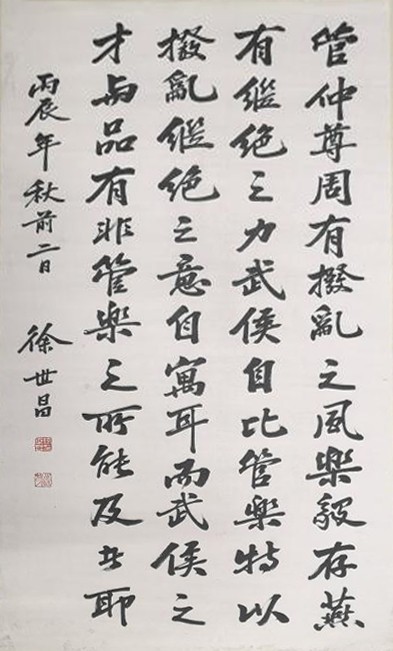 管仲尊周有撥亂之風樂毅存燕
有繼絕之力武侯自比管樂特以
撥亂繼絕之意自寓耳而武侯之
才与品有非管樂之所能及者耶
丙辰年秋前二日
徐世昌